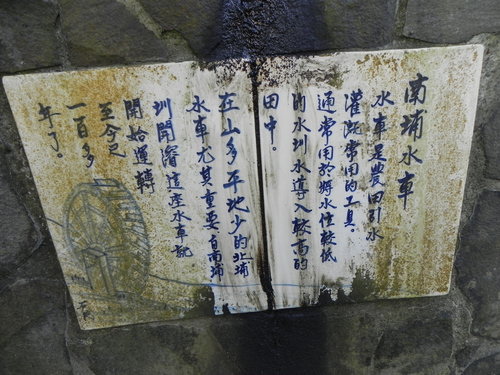 南埔水車
水車是農田引水
灌溉常用的工具。
通常用於將水位較低
的水圳水導入較高的
田中。
在山多平地少的北埔
水車尤其重要自南埔
圳開濬這座水車就
開始運轉
至今已
一百多
年了